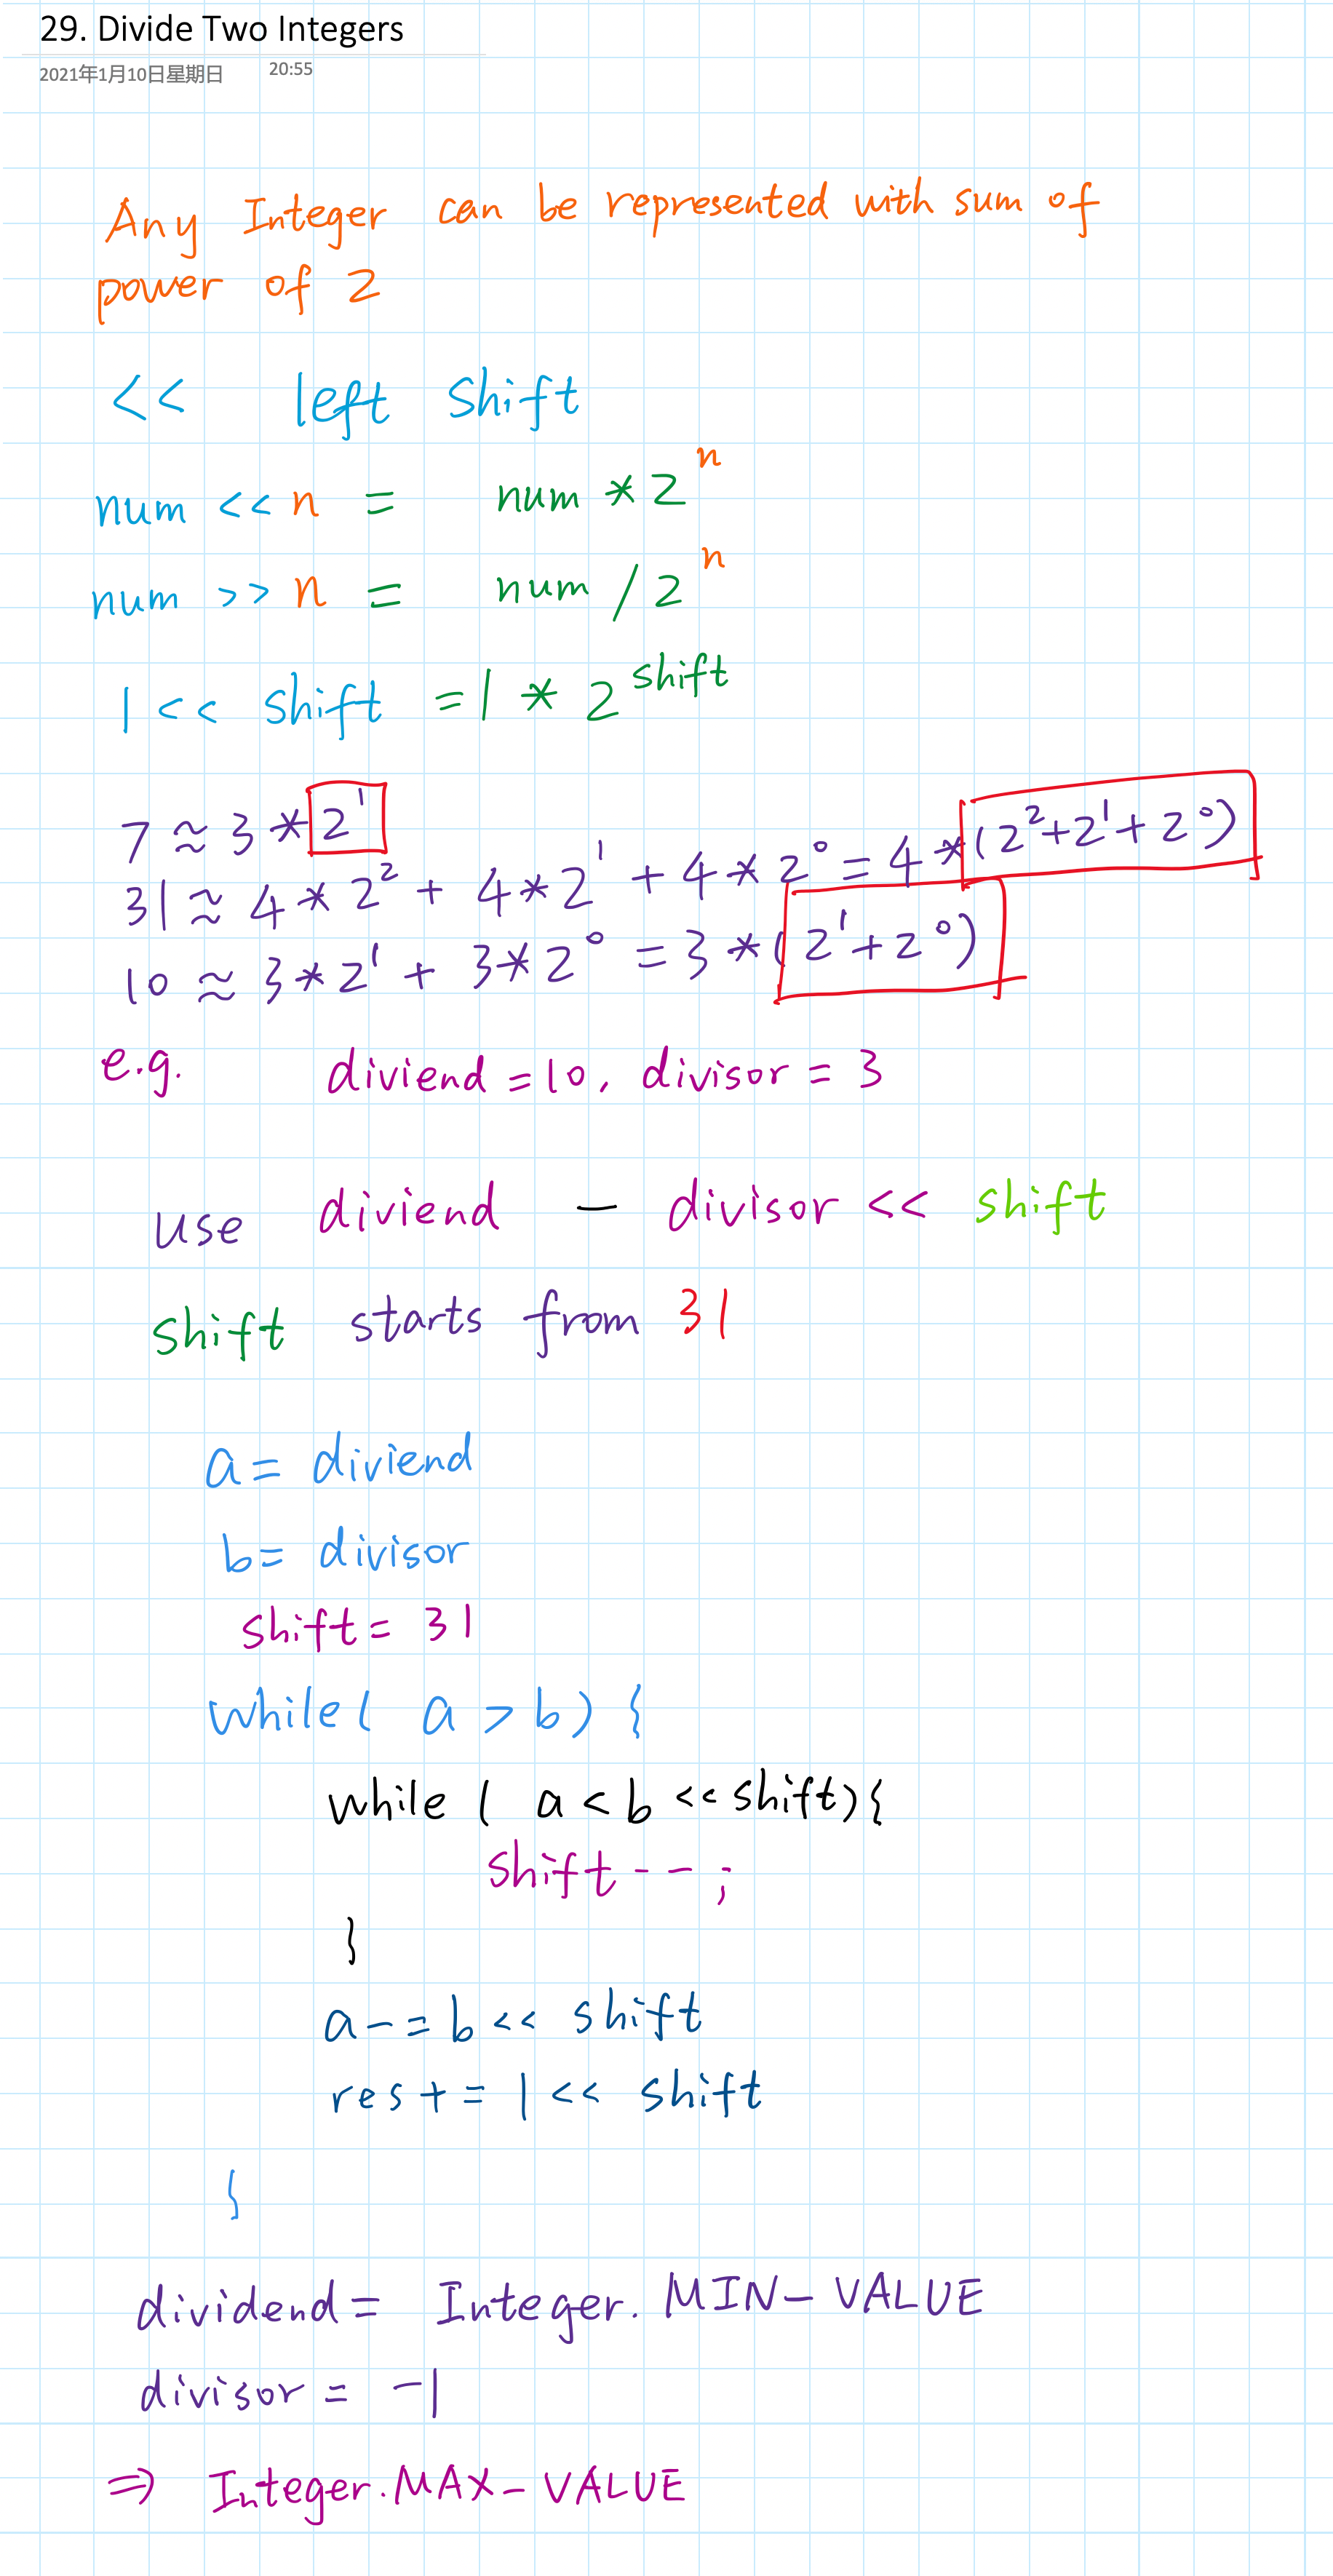 29. Divide Two Integers
2021年1月10日星期日 20:55
Any Integer can be represented with sum of
power of 2
<< left shift
num << n = num * 2^n
num >> n = num / 2^n
1 << shift = 1 * 2^shift
7 ≈ 3 * 2^1
31 ≈ 4 * 2^2 + 4 * 2^1 + 4 * 2^0 = 4 * (2^2 + 2^1 + 2^0)
10 ≈ 3 * 2^1 + 3 * 2^0 = 3 * (2^1 + 2^0)
e.g. diviend = 10, divisor = 3
use diviend — divisor << shift
shift starts from 31
a = diviend
b = divisor
shift = 31
while ( a > b ) {
while ( a < b << shift) {
shift -- ;
}
a -= b << shift
res += 1 << shift
}
dividend = Integer. MIN_VALUE
divisor = -1
⇒ Integer. MAX_VALUE